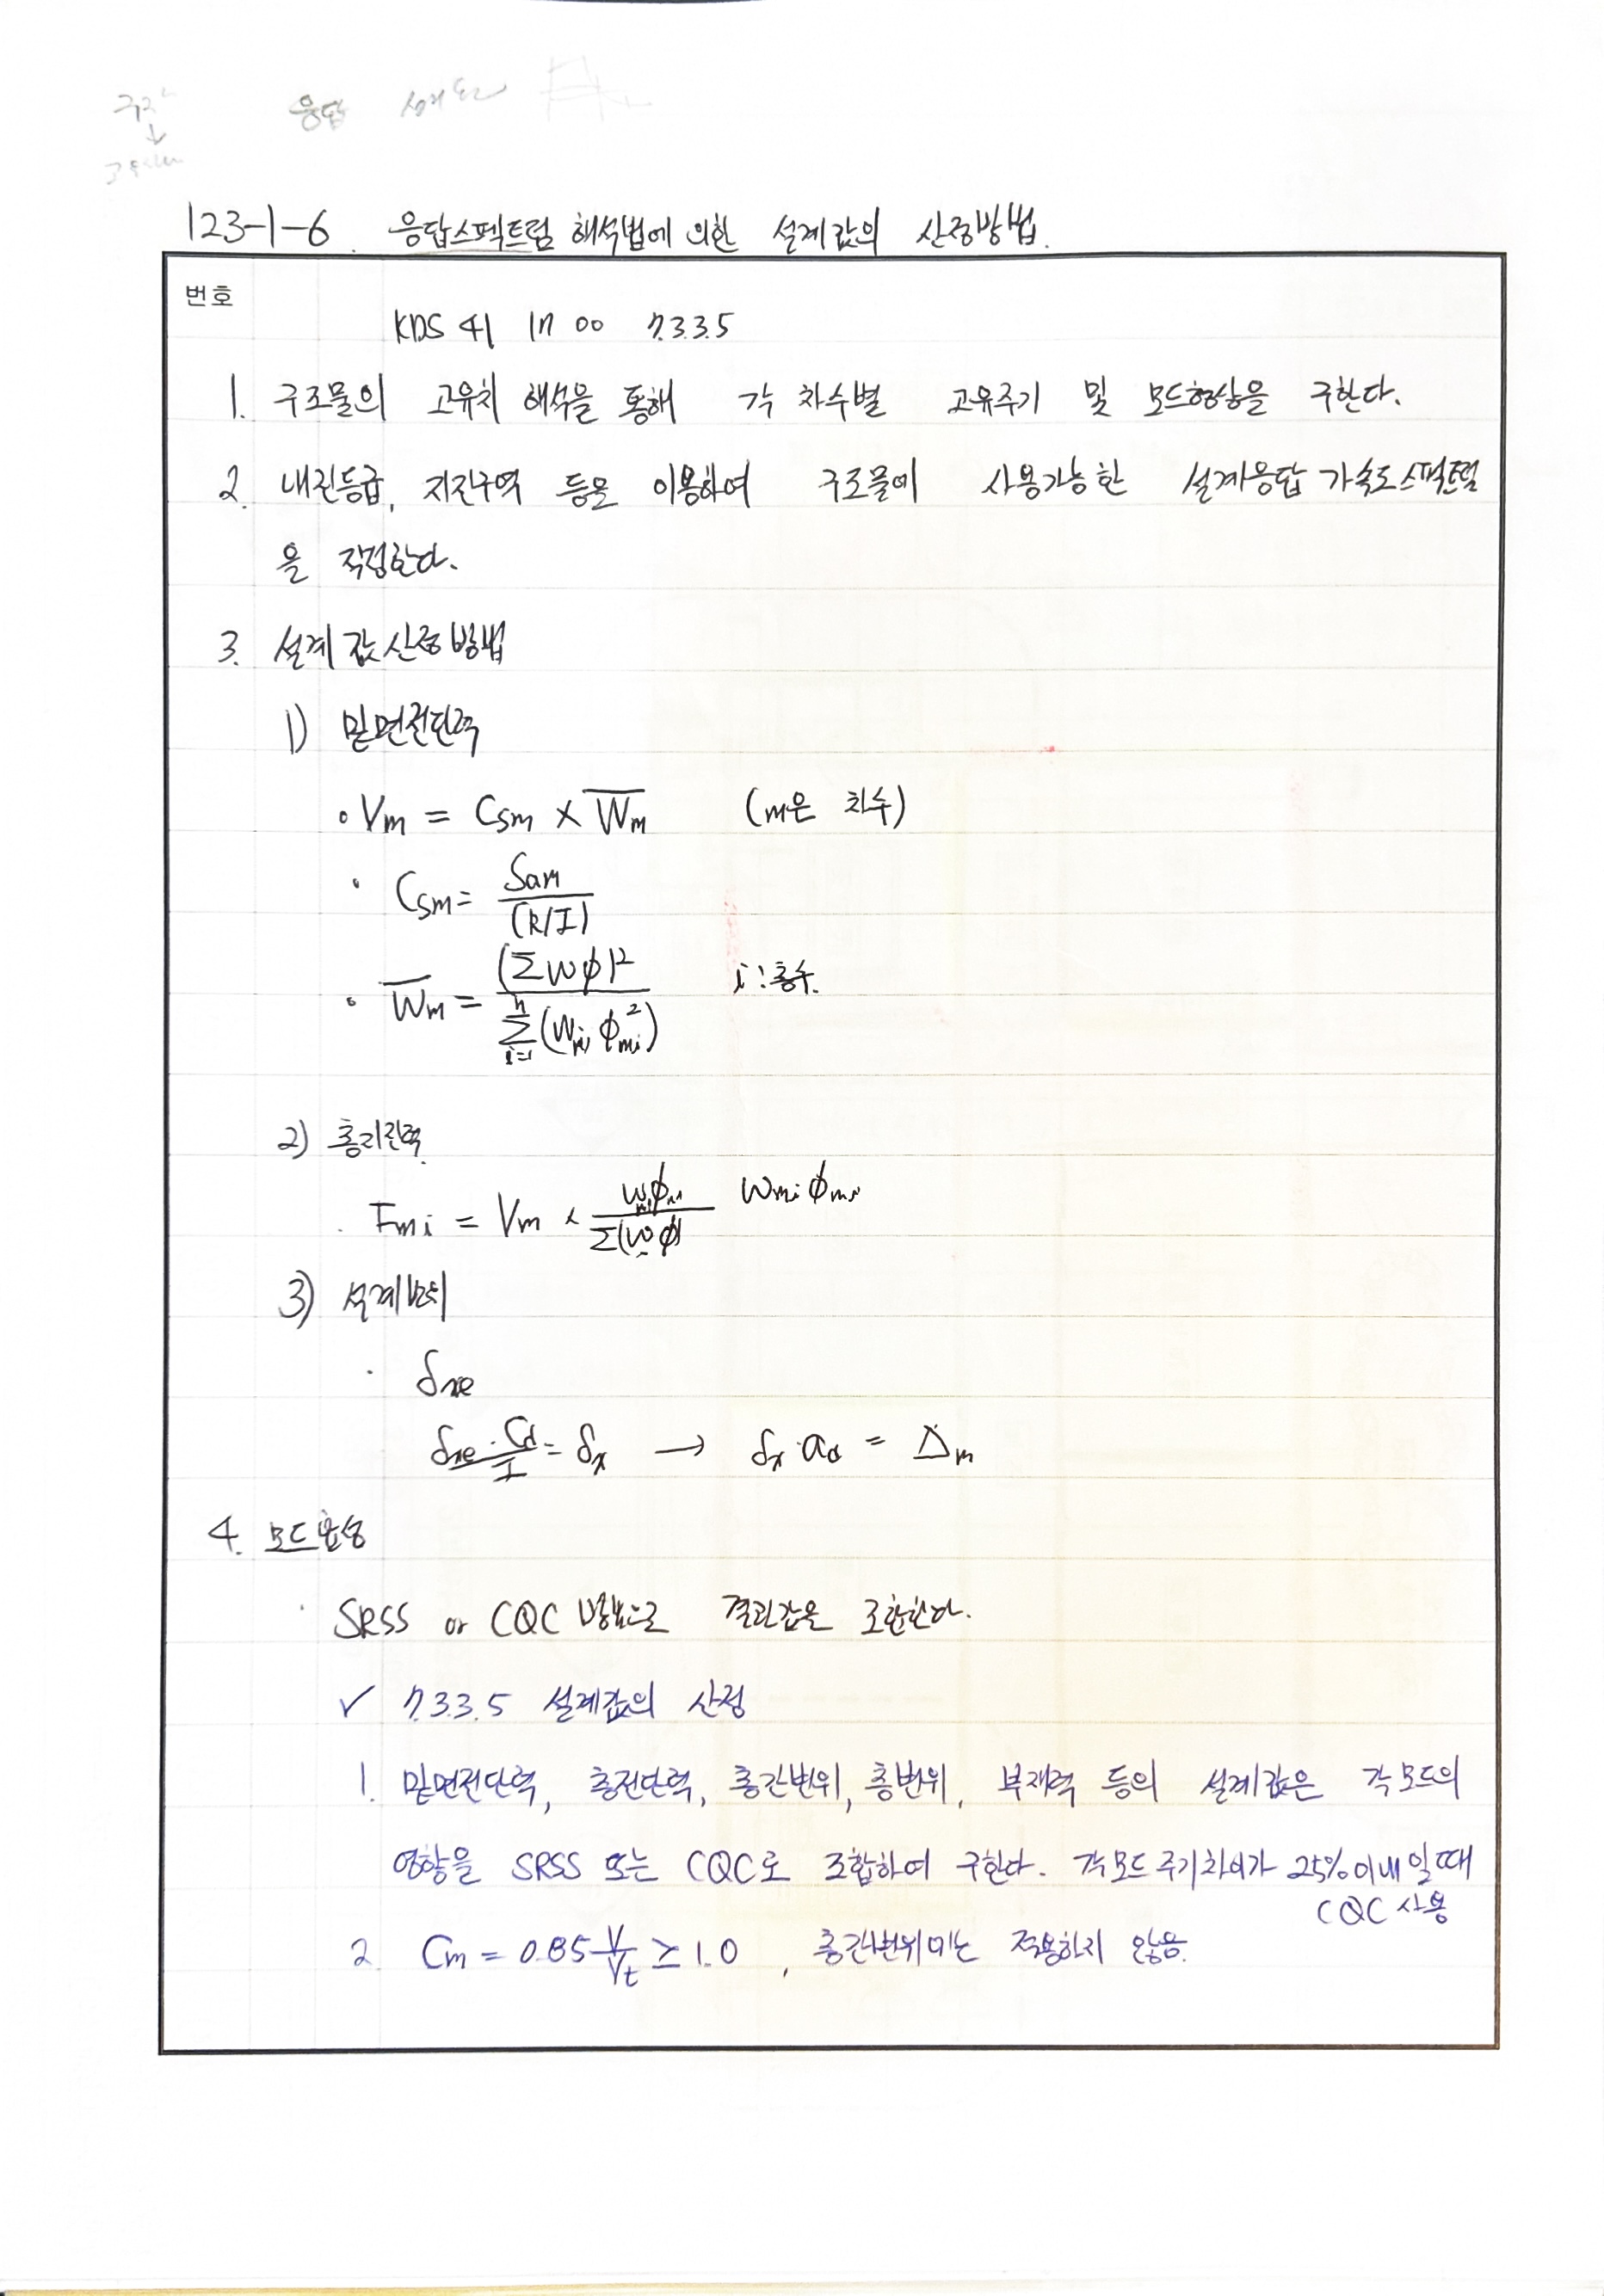 응답
123-1-6. 응답스펙트럼 해석법에 의한 설계값의 산정방법.
번호
KDS 41 17 00 7.3.3.5
1. 구조물의 고유치 해석을 통해 각 차수별 고유주기 및 모드형상을 구한다.
2. 내진등급, 지진구역 등을 이용하여 구조물에 사용가능한 설계응답가속도스펙트럼
을 작성한다.
3. 설계값 산정방법
1) 밑면전단력
• Vm = Csm × W̅m (m은 차수)
• Csm = Sam / (R/I)
• W̅m = (ΣWφ)² / Σ(i=1~n)(Wmi φmi²) i : 층수.
2) 층지진력
· Fmi = Vm × / Σ(Wφ) Wmi φmi
3) 설계변위
· δxe
δxe · Cd / I = δx → δx · ad = Δm
4. 모드합성
· SRSS or CQC 방법으로 결과값을 조합한다.
✓ 7.3.3.5 설계값의 산정
1. 밑면전단력, 층전단력, 층간변위, 층변위, 부재력 등의 설계값은 각 모드의
영향을 SRSS 또는 CQC로 조합하여 구한다. 각모드 주기차이가 25%이내일때
CQC 사용
2. Cm = 0.85 V/Vt ≥ 1.0 , 층간변위에는 적용하지 않음.